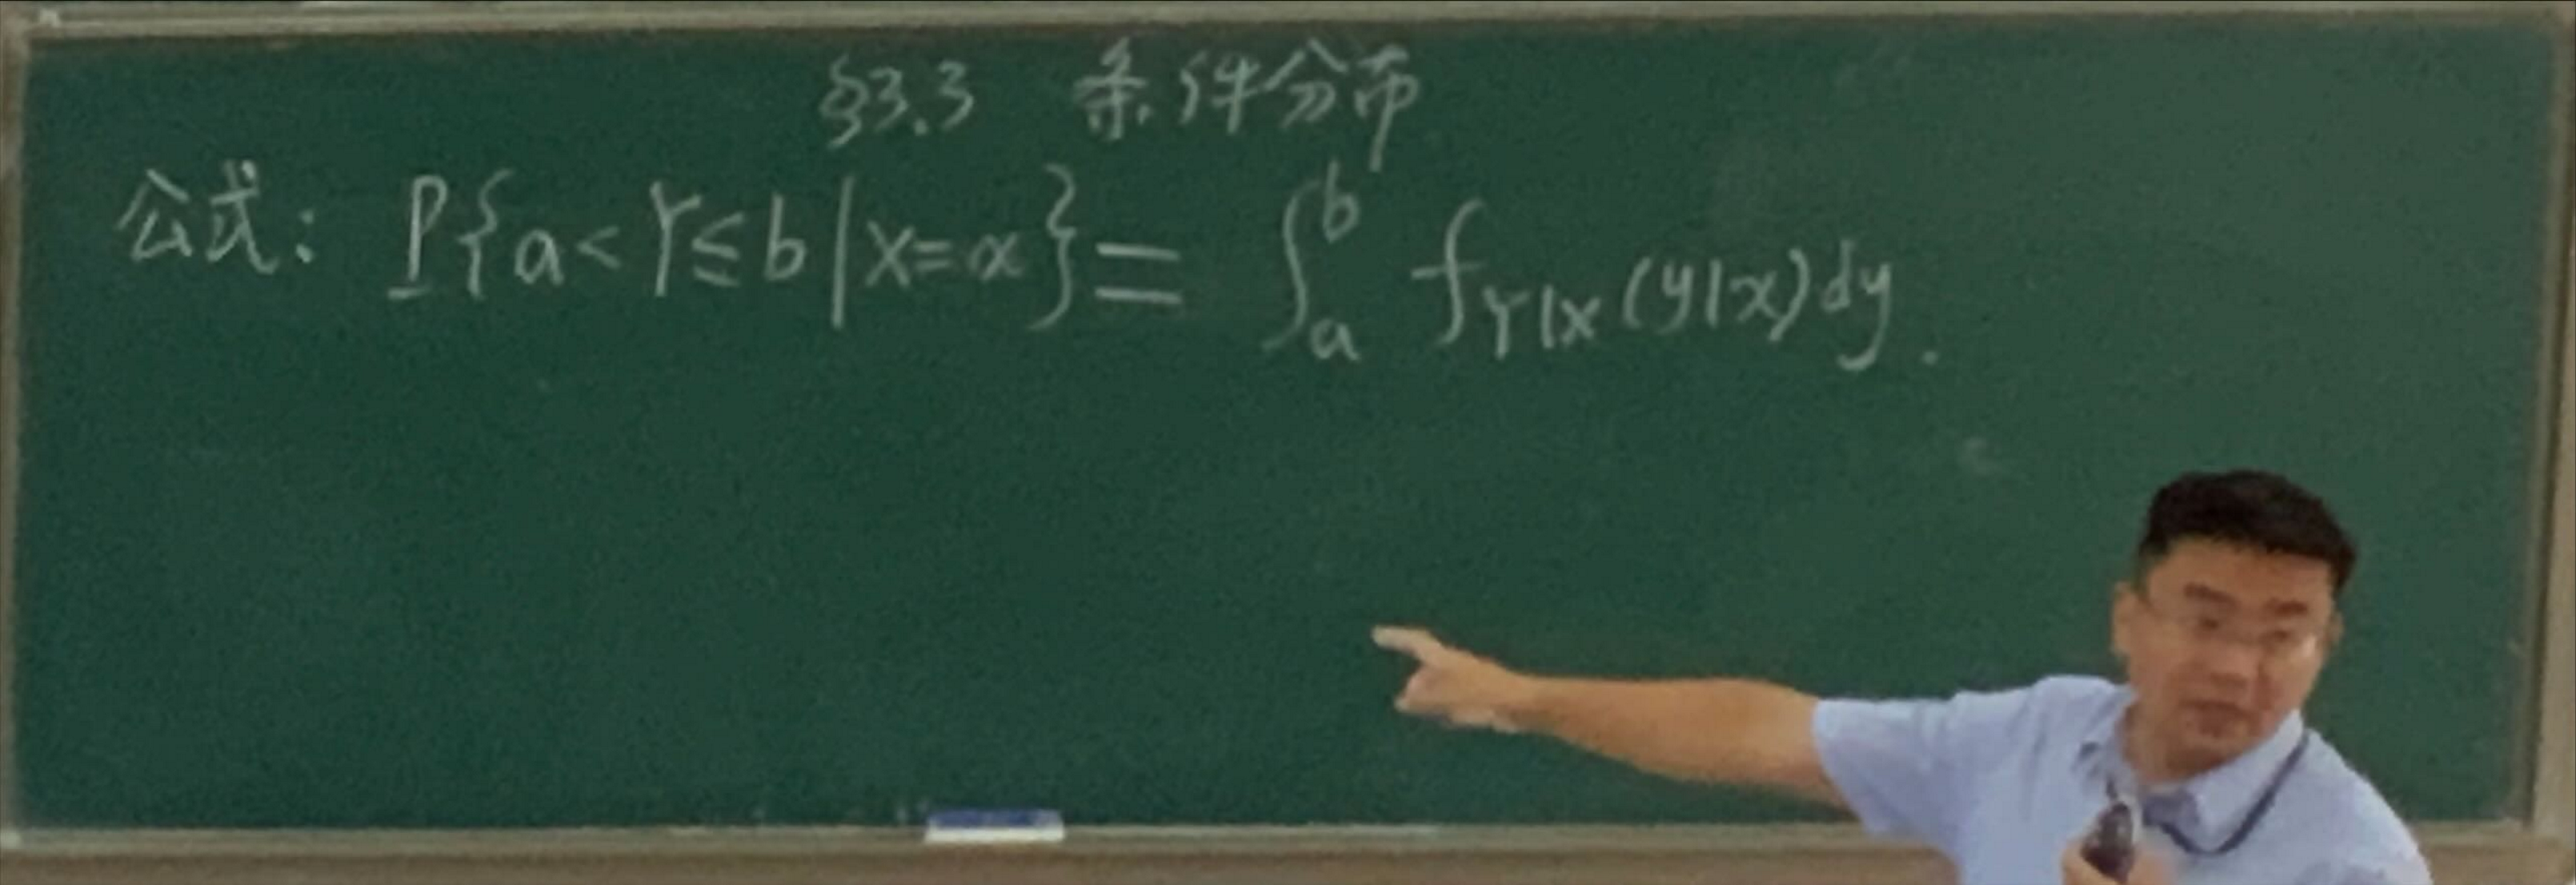 §3.3 条件分布
公式: P{a<Y≤b|X=x}= ∫_a^b f_{Y|X}(y|x)dy.